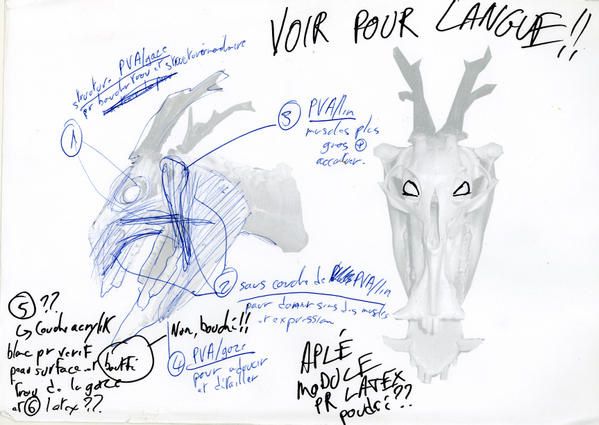 VOIR POUR LANGUE!!
structure PVA/gaze
pr boucher trou et
1
3 PVA/lin
muscles plus
gros et
2 sous couche de PVA/lin
pour donner sens des muscles
et expression
5 ??
↳ Couche acrylik
blanc pr verif
peau surface et
trou de la gaze
et 6 latex ??
Non, bouché!!
4 PVA/gaze
pour adoucir
et détailler
APLÉ
MODULE
PR LATEX
poudré??